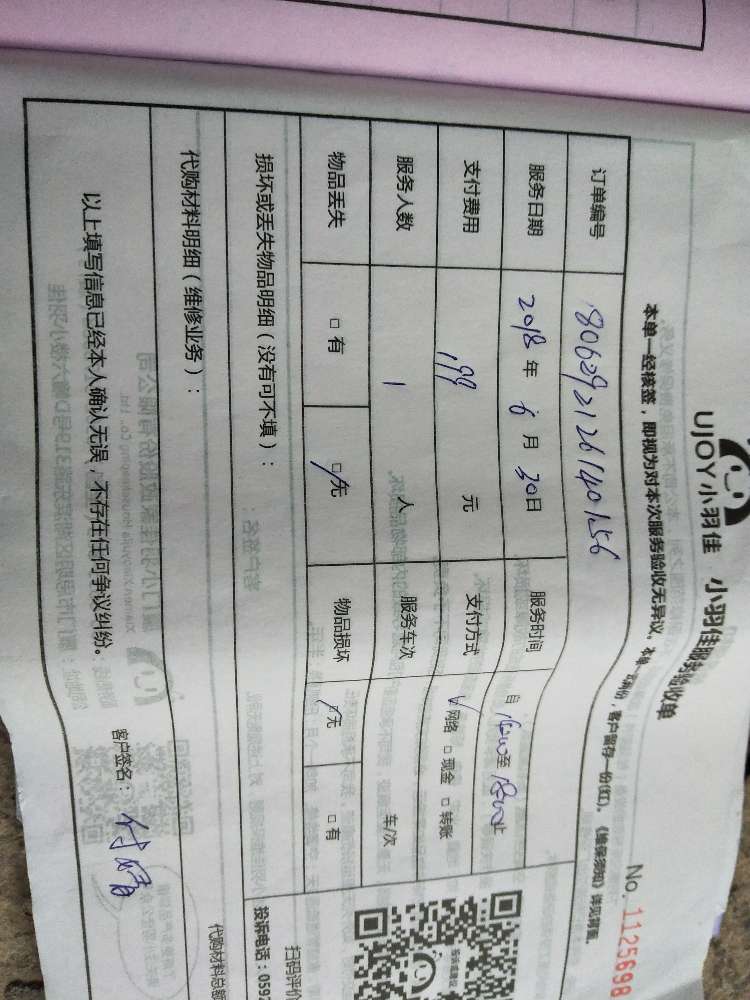 UJOY小羽佳 小羽佳服务验收单
No. 1125698
本单一经核签,即视为对本次服务验收无异议。
客户留存一份(红)。《维保须知》详见背面。
订单编号 1806292126140156
服务日期 2018 年 6 月 30日 服务时间 自 至 止
支付费用 199 元 支付方式 网络 □ 现金 □ 转账
服务人数 1 人 服务车次 车/次
物品丢失 □ 有 □ 无 物品损坏 □ 无 □ 有
损坏或丢失物品明细(没有可不填):
扫码评价
投诉电话:0592
代购材料明细(维修业务):
代购材料总额
以上填写信息已经本人确认无误,不存在任何争议纠纷。 客户签名:付婧